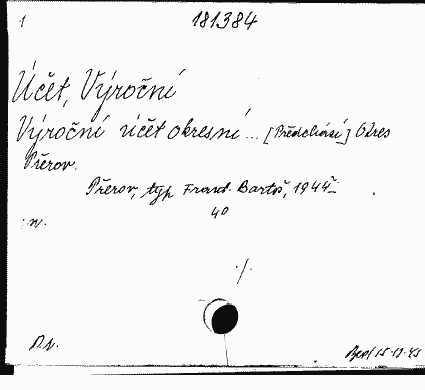 1 181384
Účet, Výroční
Výroční účet okresní ... [Předchází] Okres
Přerov.
Přerov, typ. Frant. Bartoš, 1944
4°